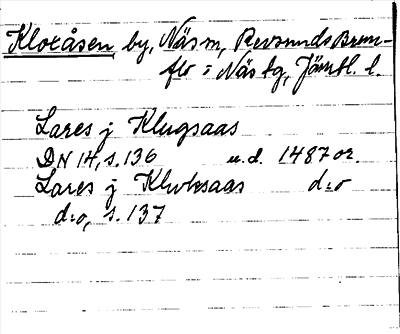 Kloxåsen, by, Näs sn, Revsunds Brun-
flo o Näs tg, Jämtl. l.
Lares j Klugsaas
DN 14, s. 136 u.d. 1487 or.
Lares j Klwksaas d:o
d:o, s. 137